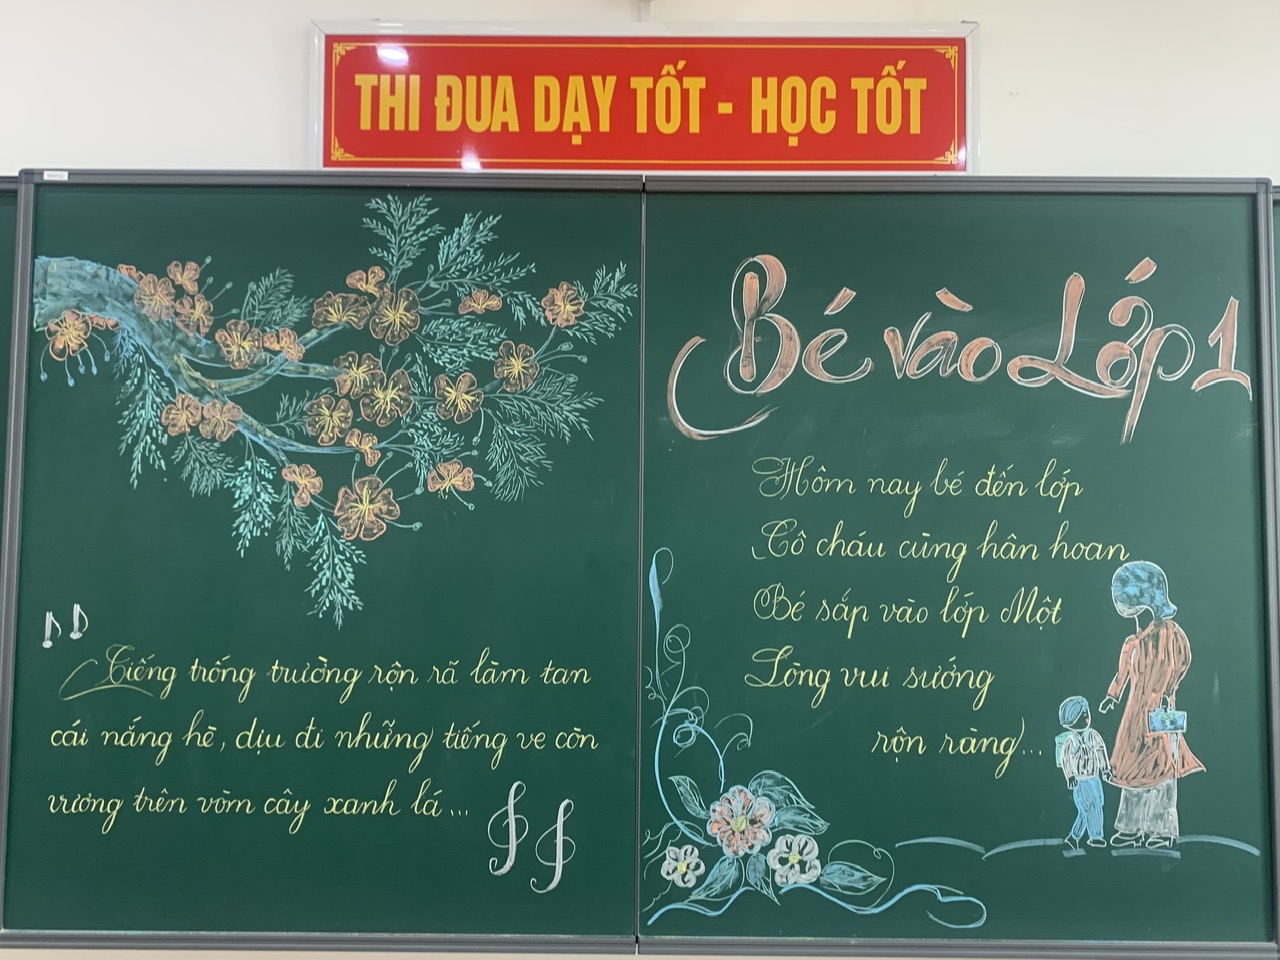 THI ĐUA DẠY TỐT - HỌC TỐT
Tiếng trống trường rộn rã làm tan
cái nắng hè, dịu đi những tiếng ve còn
vương trên vòm cây xanh lá...
Bé vào Lớp 1
Hôm nay bé đến lớp
Cô cháu cùng hân hoan
Bé sắp vào lớp Một
Lòng vui sướng
rộn ràng...